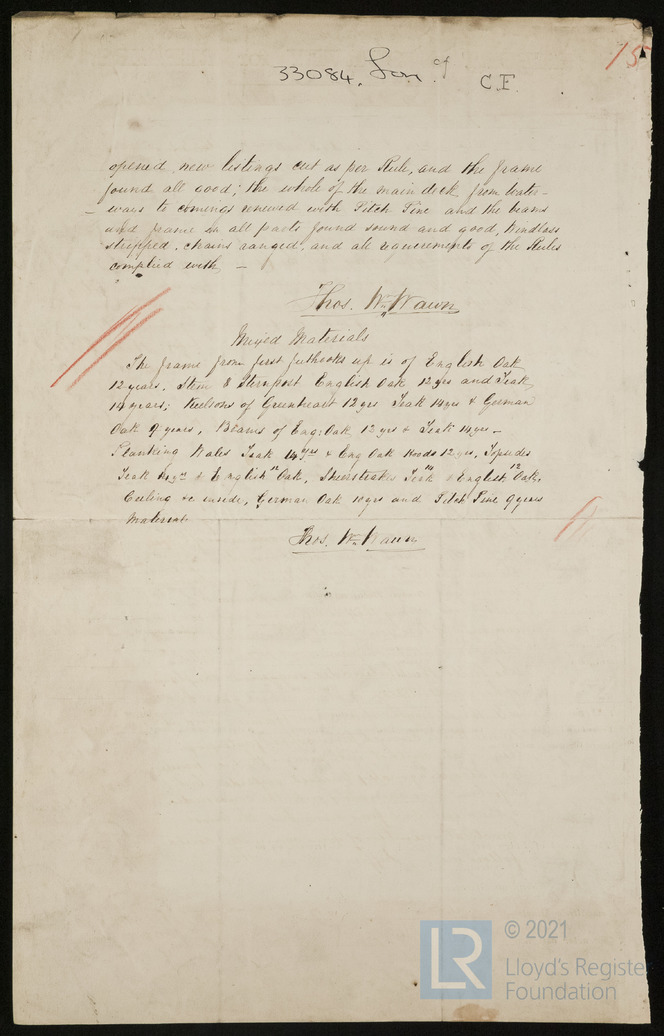 15
33084. Lon of C.F.
opened new listings cut as per Rule, and the frame
found all good; the whole of the main deck from Water-
-ways to comings renewed with Pitch Pine and the beams
and frame in all parts found sound and good, Windlass
stripped, chains ranged, and all requirements of the Rules
complied with —
Thos. Wm Wawn
Mixed Materials
The frame from first futhooks up is of English Oak
12 years, Stem & Sternpost English Oak 12 yrs and Teak
14 years; Keelsons of Greenheart 12 yrs Teak 14 yrs & German
Oak 9 years, Beams of Eng: Oak 12 yrs & Teak 14 yrs —
Planking Wales Teak 14 yrs & Eng Oak Hoods 12 yrs, Topsides
Teak 14 yrs & English 12 Oak, Sheerstrakes Teak 14 & English 12 Oak,
Ceeling &c inside, German Oak 10 yrs and Pitch Pine 9 years
Material.
Thos. Wm Wawn
LR
© 2021
Lloyd's Register
Foundation